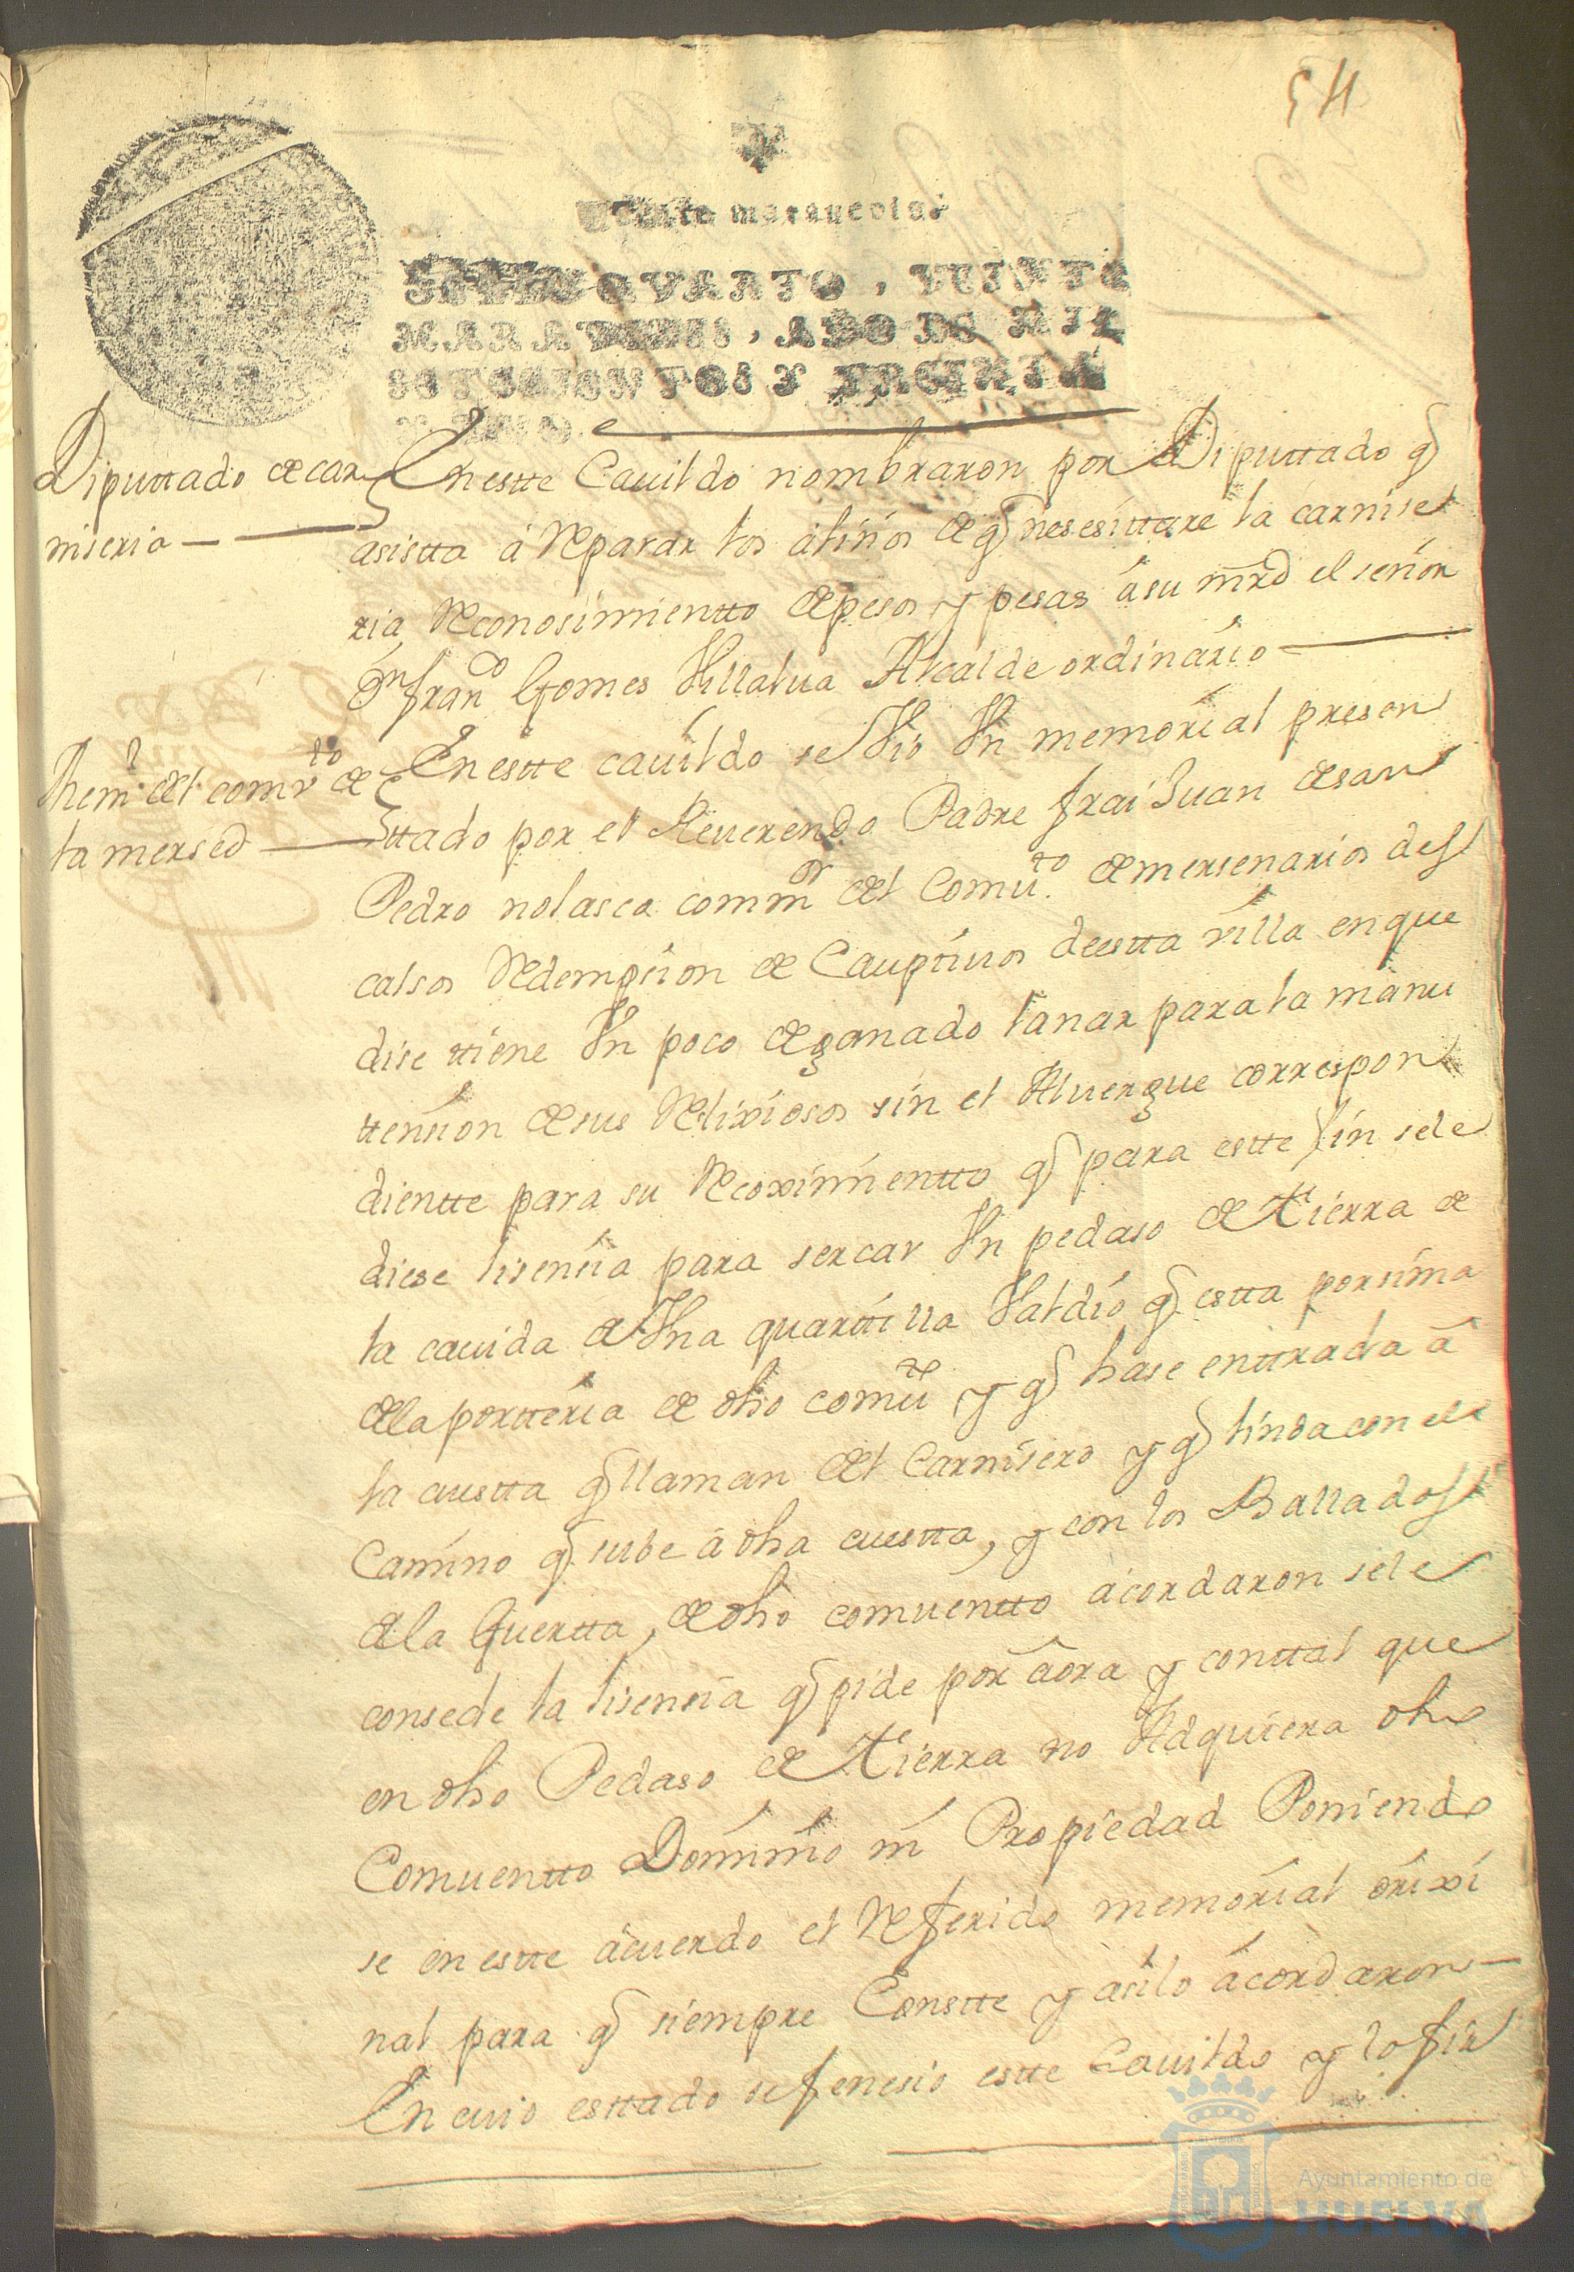 54
Veinte maravedis
SELLO QVARTO, VEINTE
MARAVEDIS, AÑO DE MIL
SETECIENTOS Y TREINTA
Y VNO.
Diputtado de car
niseria
En estte Cauildo nombraron por Diputtado q̃
asistta á Reparar los aliños de q̃ nesesittare la carnise
ria Reconosimientto de pesos y pesas á su mrd el señor
Dn. franco Gomes Villalua Alcalde ordinario
En estte cauildo se Vio Vn memorial presen
Meml. del comto de
la mersed
ttado por el Reuerendo Padre frai Juan de san
Pedro nolasco commor del Comuto. de mersenarios des
calsos Redempsion de Cauptiuos de estta villa en que
dise tiene Vn poco de ganado lanar para la manu
tension de sus Relixiosos sin el Aluergue correspon
dientte para su Recoximientto q̃ para estte fin se le
diese lisensia para sercar Vn pedaso de tierra de
la cauida de Vna quarttilla Valdio q̃ estta por sima
de la portteria de dho comuto y q̃ hase enttrada á
la cuestta q̃ llaman del Carnisero y q̃ linda con el
Camino q̃ sube á dha cuestta, y con los Ballados
de la Guertta, de dho comuentto acordaron se le
consede la lisensia q̃ pide por aora y conttal que
en dho Pedaso de tierra no Adquiera dho
Comuentto Dominio ni Propiedad Poniendo
se en estte acuerdo el Referido memorial orixi
nal para q̃ siempre Constte y asi lo acordaron
En cuio esttado se fenesio estte Cauildo y lo fir
Ayuntamiento de
HUELVA